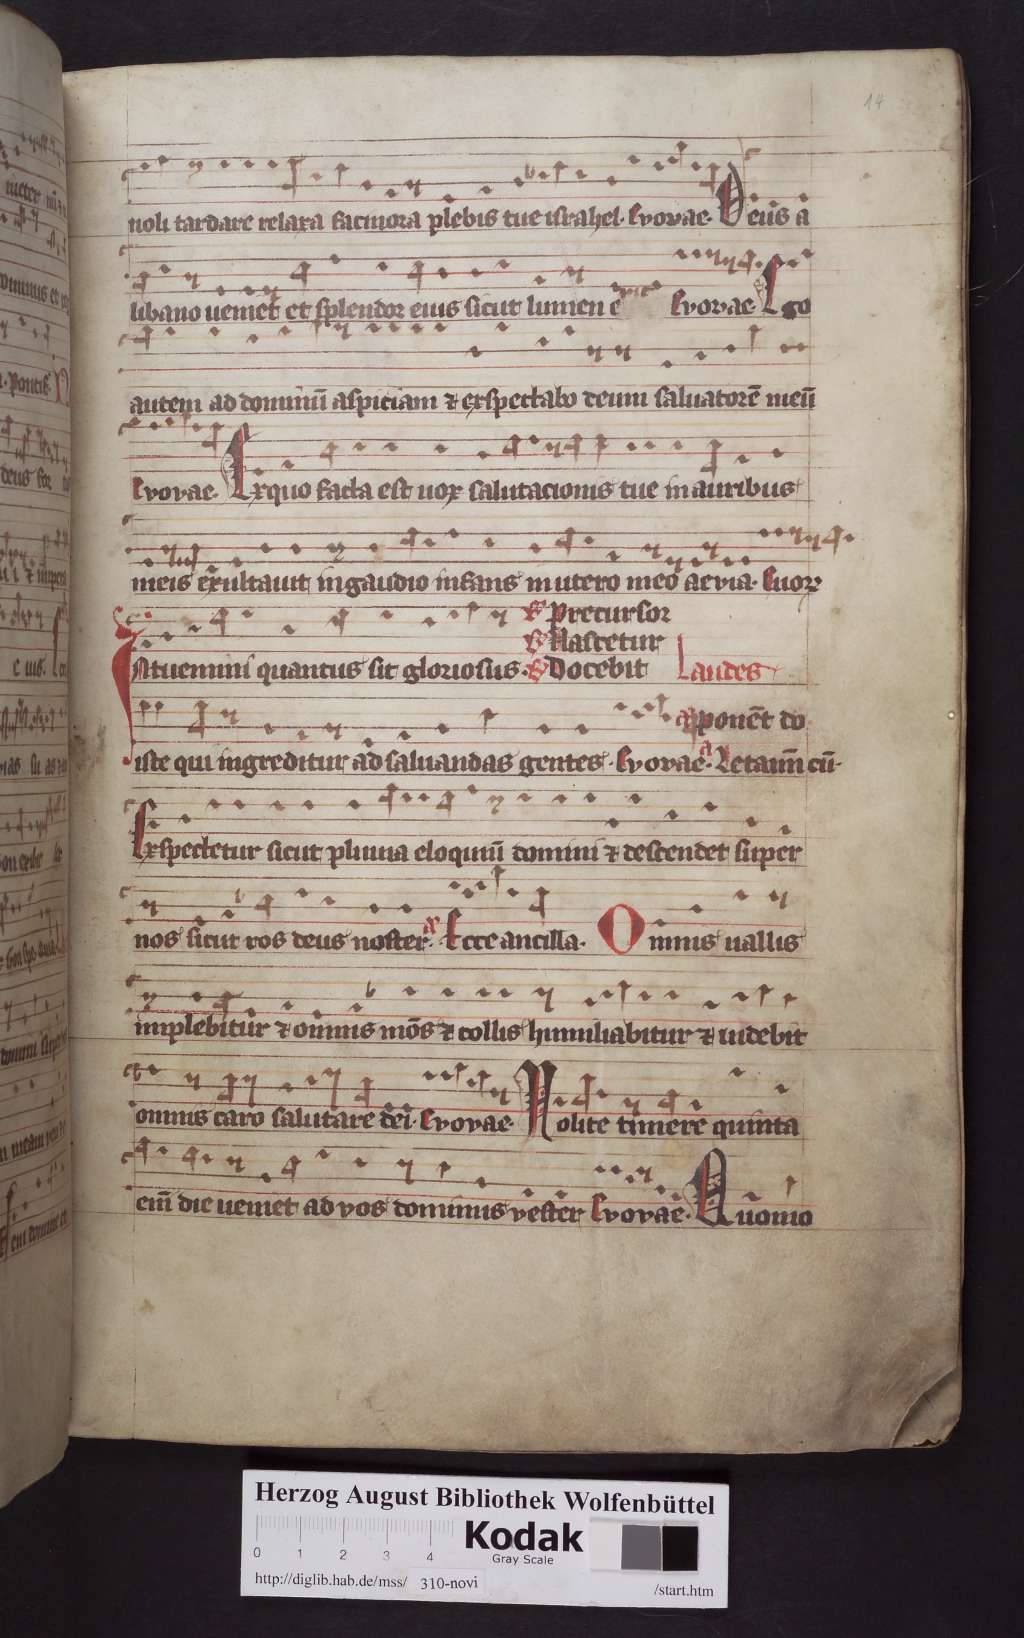 14
noli tardare relaxa facinora plebis tue israhel. Evovae. Deus a
libano ueniet et splendor eius sicut lumen e Evovae. Ego
autem ad dominū aspiciam ⁊ exspectabo deum saluatorē meū
Evovae. Exquo facta est uox salutacionis tue in auribus
meis exultauit in gaudio infans in utero meo aevia. Euov
Precursor
Nascetur
Intuemini quantus sit gloriosus. Docebit Laudes
ponēt do
iste qui ingreditur ad saluandas gentes. Evovae. Letamī cū
Exspectetur sicut pluuia eloquiū domini ⁊ descendet super
nos sicut ros deus noster. Ecce ancilla. Omnis uallis
implebitur ⁊ omnis mōs ⁊ collis humiliabitur ⁊ uidebit
omnis caro salutare dei. Evovae. Nolite timere quinta
enī die ueniet ad vos dominus vester Evovae. Quomo
Herzog August Bibliothek Wolfenbüttel
0 1 2 3 4
Kodak
Gray Scale
http://diglib.hab.de/mss/ 310-novi /start.htm